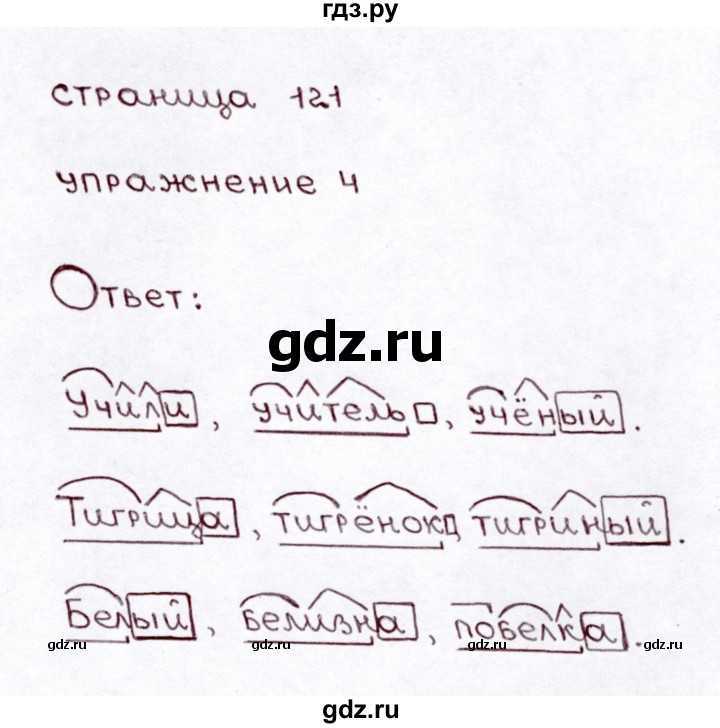 гдз.ру
страница 121
упражнение 4
Ответ:
gdz.ru
Учили, учитель, учёный.
Тигрица, тигрёнок, тигриный.
Белый, белизна, побелка.
gdz.ru gdz.ru gdz.ru gdz.ru
gdz.ru